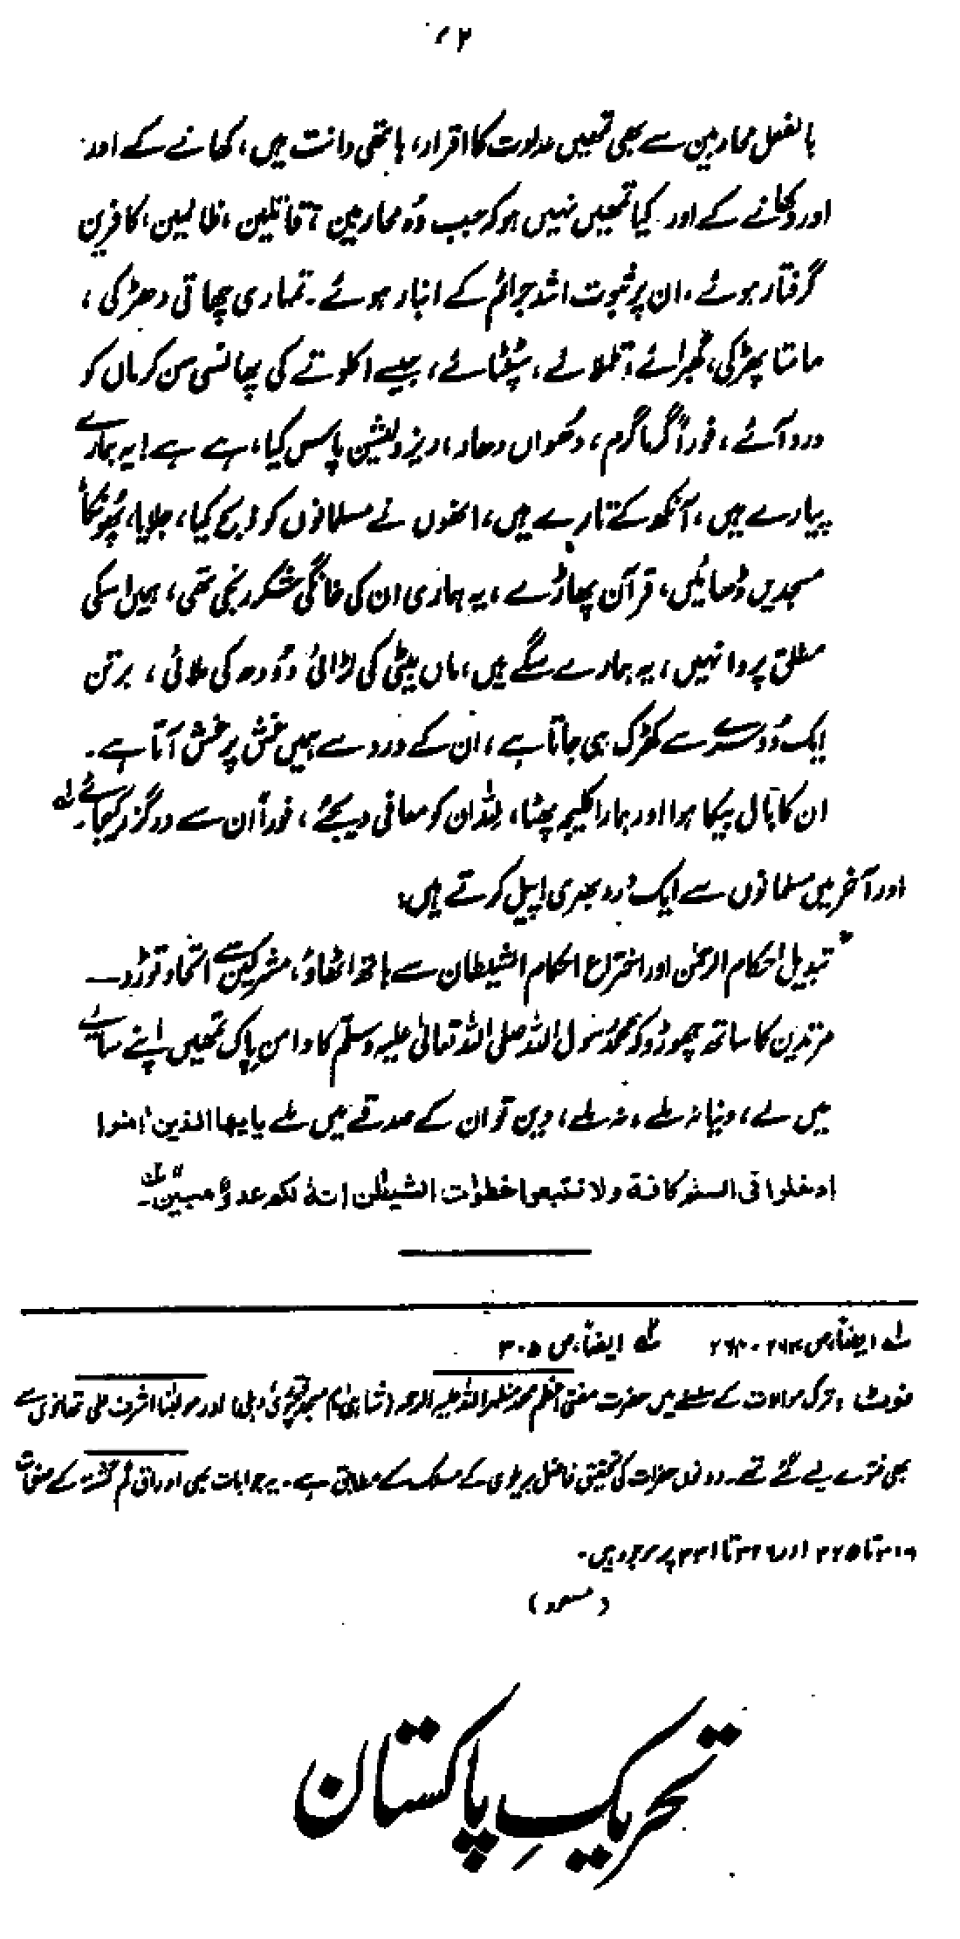 ۷۲
بالفعل محاربین سے بھی تمھیں عداوت کا اقرار، ہاتھی دانت ہیں، کھانے کے اور
اور دکھانے کے اور۔ کیا تمھیں نہیں ہو کہ جب وُہ محاربین، قاتلین، ظالمین، کافرین
گرفتار ہوئے۔ ان پر ثبوت اشد جرائم کے انبار ہوئے۔ تمہاری چھاتی دھڑکی،
مامتا پھڑکی، گھبرائے، تلملائے، سٹپٹائے، جیسے اکلوتے کی پھانسی سن کر ماں کو
درد آئے، فوراً گرما گرم، دھُواں دھار، ریزولیشن پاس کیا، ہے ہے! یہ ہمارے
پیارے ہیں، آنکھ کے تارے ہیں، انھوں نے مسلمانوں کو ذبح کیا، جلایا، پھُونکا
مسجدیں ڈھائیں، قرآن پھاڑے، یہ ہماری ان کی خانگی شکر رنجی تھی، ہمیں اسکی
مطلق پروا نہیں، یہ ہمارے سگے ہیں، ماں بیٹی کی لڑائی دُودھ کی ملائی، برتن
ایک دُوسرے سے کھڑک ہی جاتا ہے، ان کے درد سے ہمیں غش پر غش آتا ہے۔
ان کا بال بیکا ہوا اور ہمارا کلیجہ پھٹا، للہ ان کو معافی دیجئے، فوراً ان سے درگزر کیجائے۔ لہ
اور آخر میں مسلمانوں سے ایک درد بھری اپیل کرتے ہیں:
"تبدیل احکام الرحمٰن اور اختراع احکام الشیطان سے ہاتھ اٹھاؤ، مشرکین سے اتحاد توڑو ــــ
مرتدین کا ساتھ چھوڑو کہ محمد رسول اللہ صلی اللہ تعالیٰ علیہ وسلم کا دامنِ پاک تمھیں اپنے سائے
میں لے، دنیا نہ ملے، نہ ملے، دین تو ان کے صدقے میں ملے یا یھا الذین اٰمنوا
ادخلوا فی السلم کافۃ ولا تتبعوا خطوٰت الشیطٰن انہٗ لکم عدوٌّ مبین۔" ۲ہ
لہ ایضاً، ص ۲۶۴-۲۶۳ ۲ہ ایضاً، ص ۳۰۵
نوٹ: ترک موالات کے سلسلے میں حضرت مفتی اعظم محمد مظہر اللہ علیہ الرحمہ (شاہی امام مسجد فتحپوری دہلی) اور مولینا اشرف علی تھانوی سے
بھی فتوے لیے گئے تھے۔ دونوں حضرات کی تحقیق فاضل بریلوی کے مسلک کے مطابق ہے۔ یہ جوابات بھی اوراق گم گشتہ کے صفحات
۳۰۶ تا ۲۲۵ اور ۳۲۶ تا ۳۳۱ پر موجود ہیں۔
(مسعود)
تحریکِ پاکستان